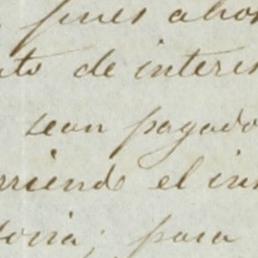 pues ahor
to de interes
sean pagado
rriendo el in
toria; para